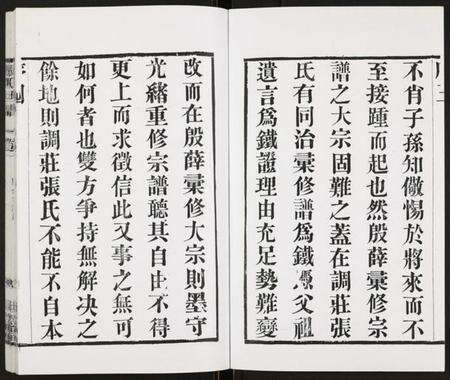 不肖子孫知儆惕於將來而不
至接踵而起也然殷薛彙修宗
譜之大宗固難之蓋在調莊張
氏有同治彙修譜爲鐵憑父祖
遺言爲鐵證理由充足勢難變
改而在殷薛彙修大宗則墨守
光緒重修宗譜聽其自由不得
更上而求徵信此又事之無可
如何者也雙方爭持無解决之
餘地則調莊張氏不能不自本